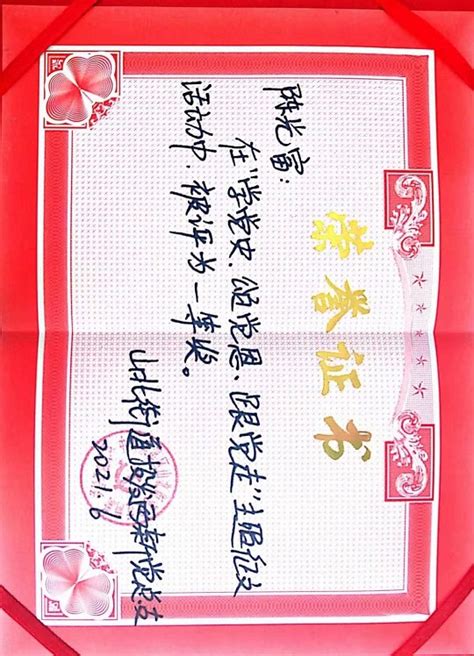 荣誉证书
陈光富:
在“学党史、颂党恩、跟党走”主题征文
活动中,被评为一等奖。
山北街道
新党总支
2021.6